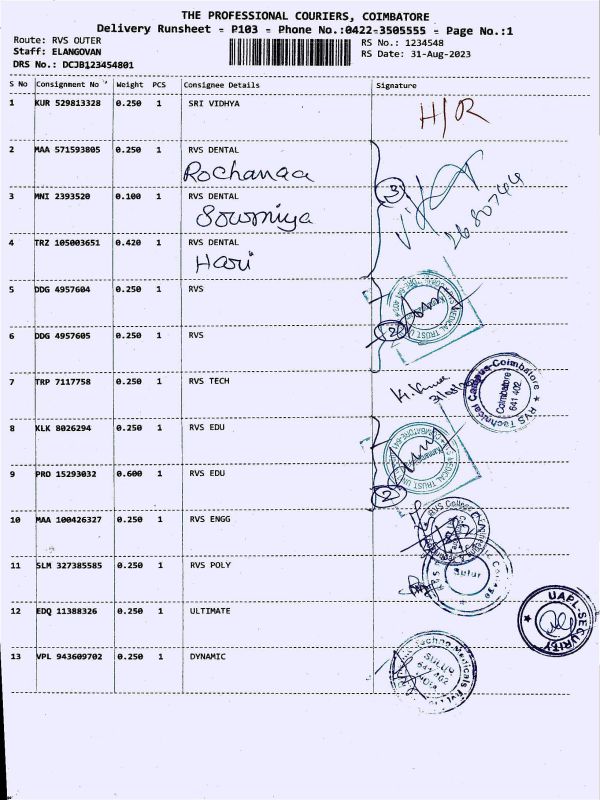 THE PROFESSIONAL COURIERS, COIMBATORE
Delivery Runsheet - P103 - Phone No.:0422-3505555 - Page No.:1
Route: RVS OUTER
Staff: ELANGOVAN
DRS No.: DCJB123454801
RS No.: 1234548
RS Date: 31-Aug-2023
S No Consignment No Weight PCS Consignee Details Signature
1 KUR 529813328 0.250 1 SRI VIDHYA H/R
2 MAA 571593805 0.250 1 RVS DENTAL
Rochanaa
3 MNI 2393520 0.100 1 RVS DENTAL
Sowmiya
3
2680744
4 TRZ 105003651 0.420 1 RVS DENTAL
Hari
5 DDG 4957604 0.250 1 RVS
MEDICAL TRUST
2
6 DDG 4957605 0.250 1 RVS
7 TRP 7117758 0.250 1 RVS TECH
RVS Technical Campus-Coimbatore
Coimbatore
641 402
8 KLK 8026294 0.250 1 RVS EDU
MEDICAL TRUST
9 PRO 15293032 0.600 1 RVS EDU
2
10 MAA 100426327 0.250 1 RVS ENGG
RVS College of
11 SLM 327385585 0.250 1 RVS POLY
Sulur
12 EDQ 11388326 0.250 1 ULTIMATE
UAPL-SECURITY
13 VPL 943609702 0.250 1 DYNAMIC
Techno Medicals Pvt Ltd
SULUR
641 402